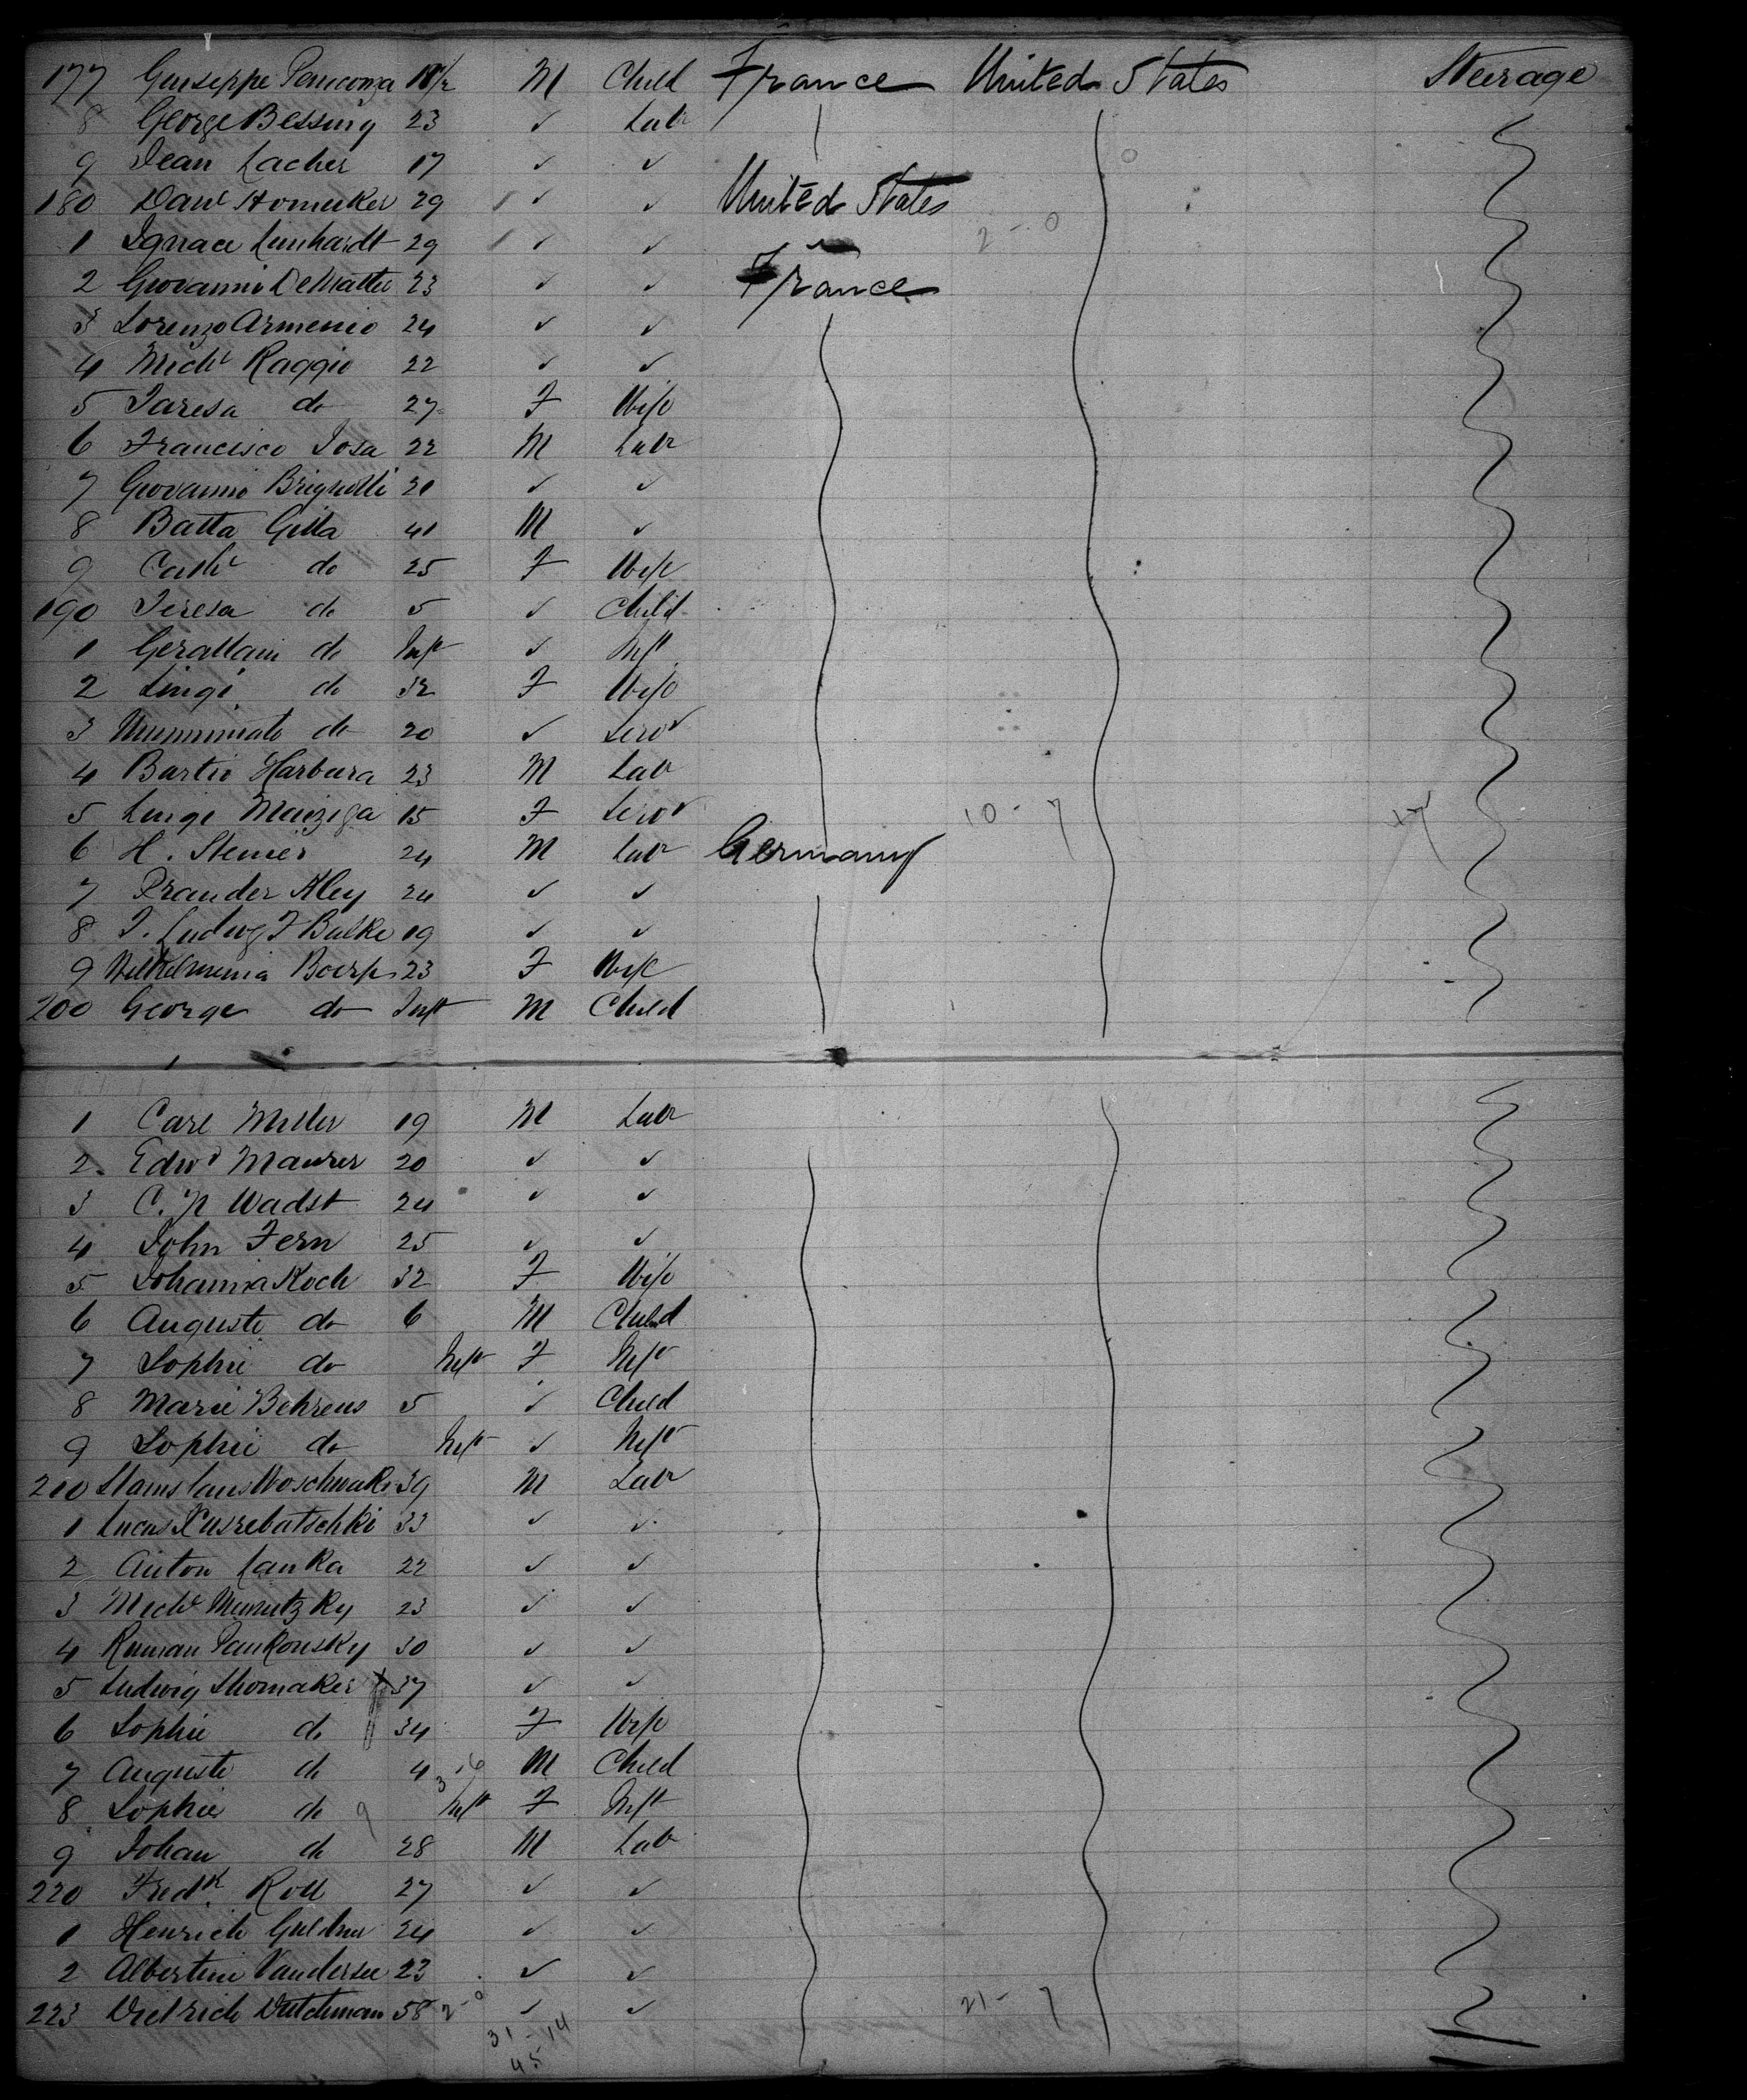 177 Giuseppe 11/2 M Child France United States Steerage
8 George Bessing 23 ✓ Labr
9 Jean Lacher 17 ✓ ✓
180 Danl Homeker 29 ✓ ✓ United States
1 Ignace Leinhardt 29 ✓ ✓ 2 - 0
2 Giovanni DeMatteo 23 ✓ ✓ France
3 Lorenzo Armenio 24 ✓ ✓
4 Michl Raggio 22 ✓ ✓
5 Taresa do 27 F Wife
6 Francisco Josa 22 M Labr
7 Giovanni Brignolli 21 ✓ ✓
8 Batta Gilla 41 M ✓
9 Cathe do 25 F Wife
190 Teresa do 5 ✓ Child
1 do Inft ✓ Inft
2 Lingi do 32 F Wife
3 do 20 ✓ Servt
4 Bartio Harbura 23 M Labr
5 Luigi 15 F Servt 10 - 7
6 H. Steiner 24 M Labr Germany
7 Prander Kley 24 ✓ ✓
8 J. Ludwg F Bulke 19 ✓ ✓
9 Wilhelmenia 23 F Wife
200 George do Inft M Child
1 Carl Miller 19 M Labr
2 Edwd Maurer 20 ✓ ✓
3 C. N Wadst 24 ✓ ✓
4 John Fern 25 ✓ ✓
5 Johanna Koch 32 F Wife
6 Auguste do 6 M Child
7 Sophie do Inft F Inft
8 Marie Behrens 5 ✓ Child
9 Sophie do Inft ✓ Inft
210 Stanislaus 39 M Labr
1 Lucas 33 ✓ ✓
2 Anton Lanka 22 ✓ ✓
3 Michl 23 ✓ ✓
4 Ruman Pankonsky 30 ✓ ✓
5 Ludwig Shomaker 37 ✓ ✓
6 Sophie do 34 F Wife
7 Auguste do 4 M Child
8 Sophie do Inft F Inft
9 Johan do 28 M Labr
220 Fredk Roll 27 ✓ ✓
1 Henrich 24 ✓ ✓
2 Albertine Vandersee 23 ✓ ✓
223 Dietrich Dutchman 58 2-0 ✓ ✓ 21 - 7
31 - 14
45